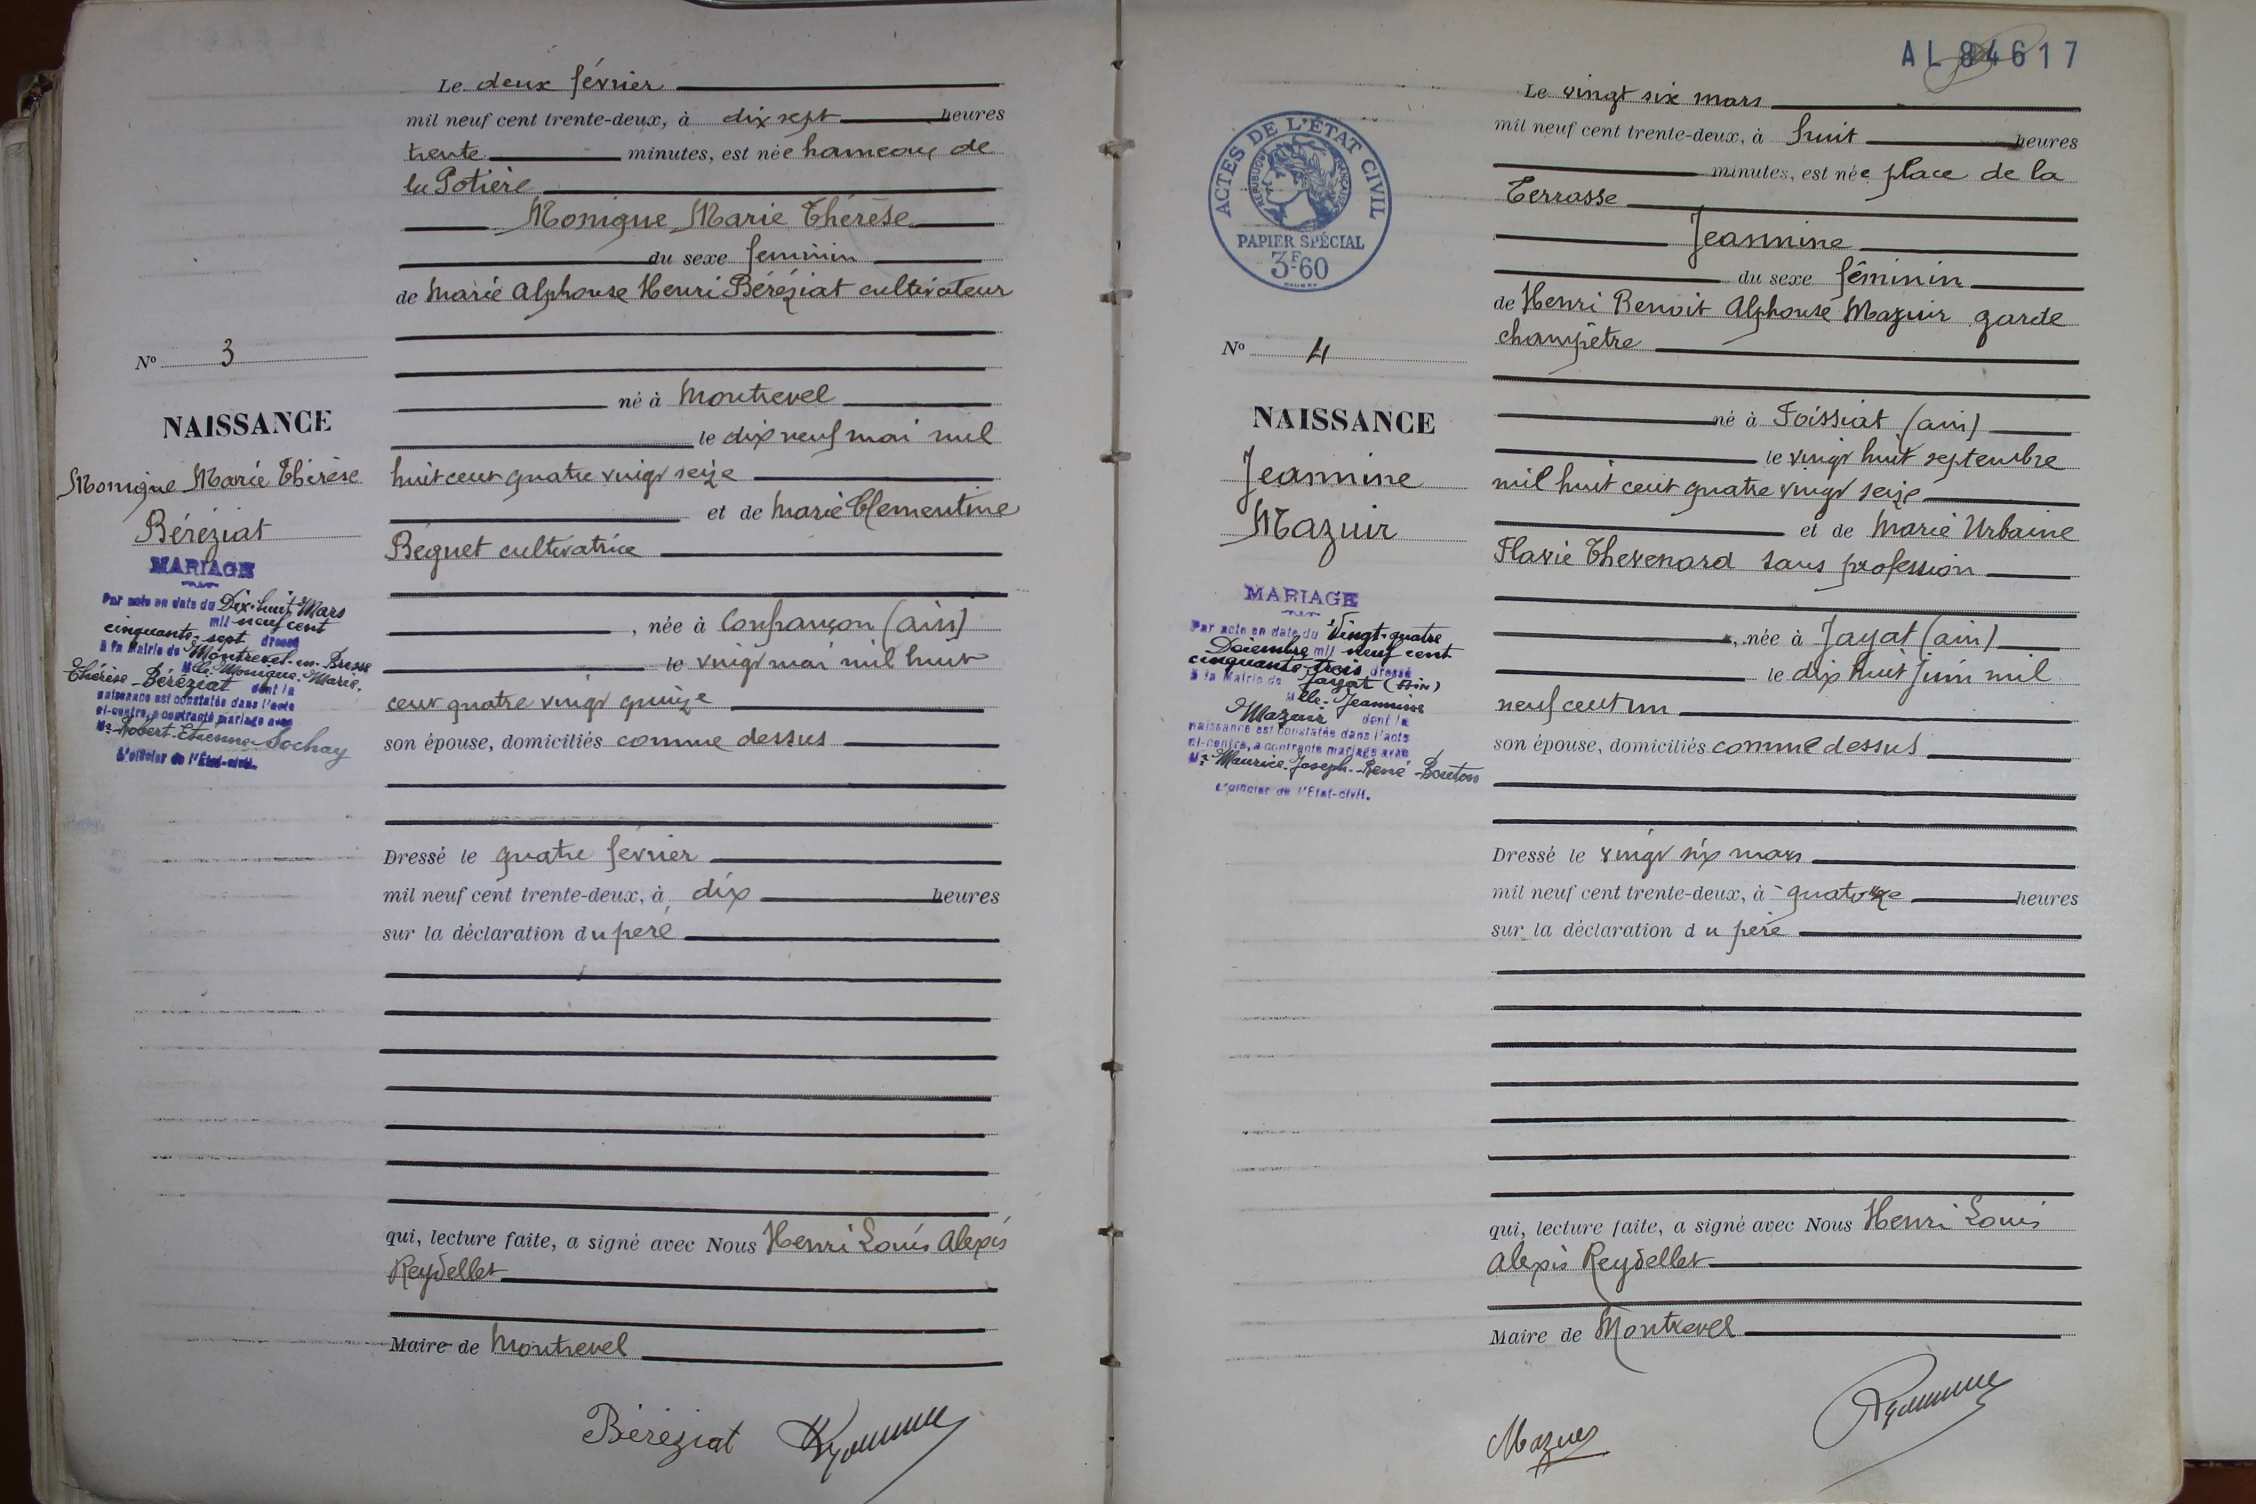 Le deux février
mil neuf cent trente-deux, à dix sept heures
trente minutes, est née hameau de
la Potière
Monique Marie Thérèse
du sexe feminin
de Marie Alphonse Henri Béréziat cultivateur
né à Montrevel
le dix neuf mai mil
huit cent quatre vingt seize
et de Marie Clementine
Beguet cultivatrice
, née à Confrançon (Ain)
le vingt mai mil huit
cent quatre vingt quinze
son épouse, domiciliés comme dessus
Dressé le quatre février
mil neuf cent trente-deux, à dix heures
sur la déclaration du père
qui, lecture faite, a signé avec Nous Henri Louis Alexis
Reydellet
Maire de Montrevel
Béréziat
No 3
NAISSANCE
Monique Marie Thérèse
Béréziat
MARIAGE
Par acte en date du Dix-huit Mars
mil neuf cent
cinquante-sept dressé
à la Mairie de Montrevel-en-Bresse
Mlle Monique-Marie-
Thérèse Béréziat dont la
naissance est constatée dans l'acte
ci-contre, a contracté mariage avec
Mr Robert-Etienne Sochay
L'officier de l'État-civil.
AL 84617
ACTES DE L'ÉTAT CIVIL
RÉPUBLIQUE FRANÇAISE
PAPIER SPÉCIAL
3F60
Le vingt six mars
mil neuf cent trente-deux, à huit heures
minutes, est née place de la
Terrasse
Jeannine
du sexe féminin
de Henri Benoit Alphonse Mazuir garde
champêtre
né à Foissiat (ain)
le vingt huit septembre
mil huit cent quatre vingt seize
et de Marie Urbaine
Flavie Thevenard sans profession
, née à Jayat (ain)
le dix huit Juin mil
neuf cent un
son épouse, domiciliés comme dessus
Dressé le vingt six mars
mil neuf cent trente-deux, à quatorze heures
sur la déclaration du père
qui, lecture faite, a signé avec Nous Henri Louis
Alexis Reydellet
Maire de Montrevel
Mazuir
No 4
NAISSANCE
Jeannine
Mazuir
MARIAGE
Par acte en date du Vingt-quatre
Décembre mil neuf cent
cinquante-trois dressé
à la Mairie de Jayat (Ain)
Mlle Jeannine
Mazuir dont la
naissance est constatée dans l'acte
ci-contre, a contracté mariage avec
Mr Maurice-Joseph-René Bouton
L'officier de l'État-civil.